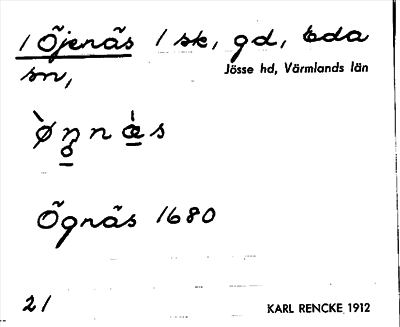 1 Öjenäs 1 sk, gd, Eda
sn,
Jösse hd, Värmlands län
Ögnäs 1680
21
KARL RENCKE 1912